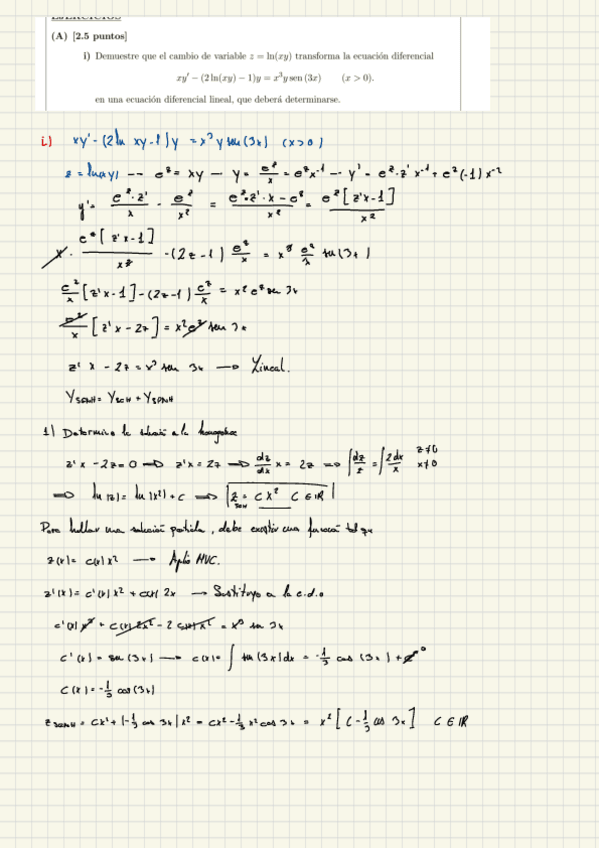 EJERCICIOS
(A) [2.5 puntos]
i) Demuestre que el cambio de variable z = ln(xy) transforma la ecuación diferencial
xy' − (2 ln(xy) − 1)y = x³y sen (3x) (x > 0).
en una ecuación diferencial lineal, que deberá determinarse.
i.) xy' - (2 ln xy - 1) y = x³ y sen (3x) (x > 0)
z = ln(xy) -- e^z = xy — y = e^z/x = e^z x^-1 -- y' = e^z · z' x^-1 + e^z (-1) x^-2
y' = e^z · z'/x - e^z/x² = (e^z · z' · x - e^z)/x² = e^z [z'x - 1]/x²
x · e^z [z'x - 1]/x² - (2z - 1) e^z/x = x³ e^z/x sen (3x)
e^z/x [z'x - 1] - (2z - 1) e^z/x = x² e^z sen 3x
e^z/x [z'x - 2z] = x² e^z sen 3x
z' x - 2z = x³ sen 3x → Lineal.
Y_SGNH = Y_SGH + Y_SPNH
1) Determino la solución a la homogénea
z' x - 2z = 0 ⇒ z'x = 2z ⇒ dz/dx x = 2z ⇒ ∫ dz/z = ∫ 2dx/x z≠0 x≠0
⇒ ln |z| = ln |x²| + C ⇒ z_SGH = C x² C ∈ IR
Para hallar una solución particular, debe existir una función tal que
z(x) = c(x) x² → Aplico MVC.
z'(x) = c'(x) x² + c(x) 2x → Sustituyo a la e.d.o
c'(x) x³ + c(x) 2x² - 2 c(x) x² = x³ sen 3x
c'(x) = sen (3x) → c(x) = ∫ sen (3x) dx = -1/3 cos (3x) + c⁰
C(x) = -1/3 cos (3x)
z_SGNH = Cx² + (-1/3 cos 3x) x² = Cx² - 1/3 x² cos 3x = x² [C - 1/3 cos 3x] C ∈ IR